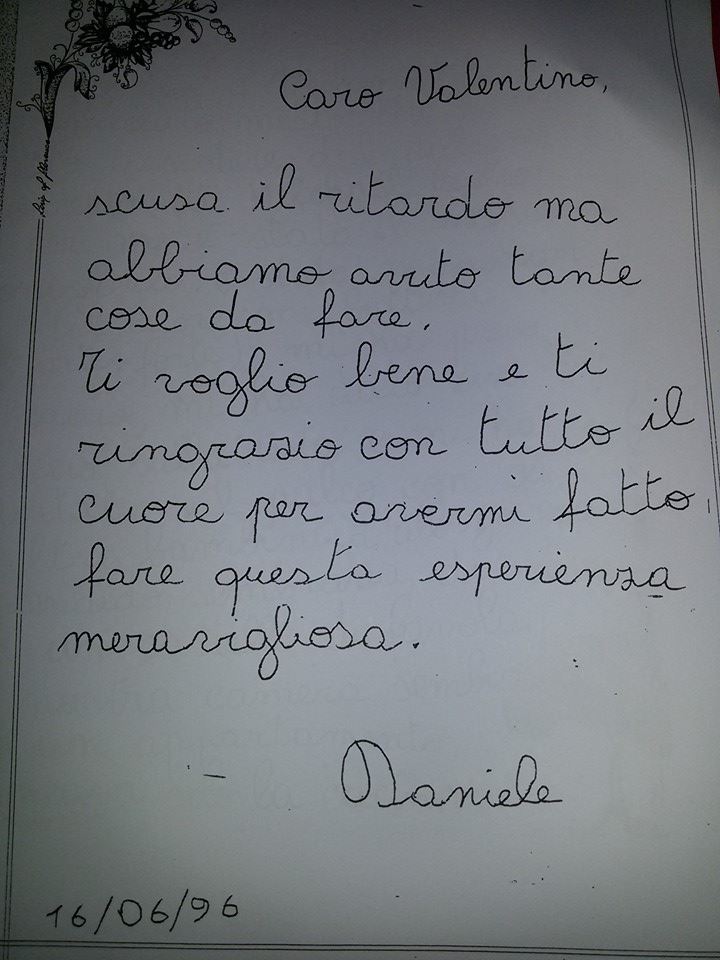 Caro Valentino,
scusa il ritardo ma
abbiamo avuto tante
cose da fare.
Ti voglio bene e ti
ringrazio con tutto il
cuore per avermi fatto
fare questa esperienza
meravigliosa.
Daniele
16/06/96